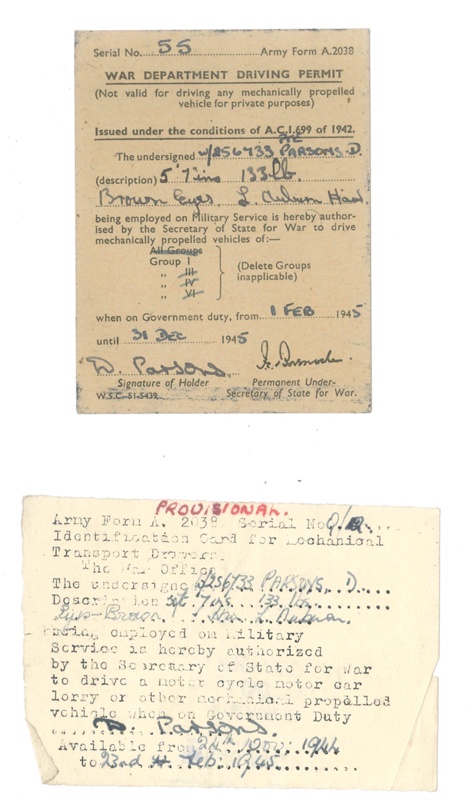 Serial No. 55 Army Form A.2038
WAR DEPARTMENT DRIVING PERMIT
(Not valid for driving any mechanically propelled
vehicle for private purposes)
Issued under the conditions of A.C.I.699 of 1942.
PTE
The undersigned W/256733 PARSONS. D.
(description) 5' 7 ins 133 lb.
Brown Eyes L. Auburn Hair.
being employed on Military Service is hereby author-
ised by the Secretary of State for War to drive
mechanically propelled vehicles of:—
All Groups
Group I
„ III
„ IV
„ VI
(Delete Groups
inapplicable)
when on Government duty, from 1 FEB 1945
until 31 DEC 1945
D. Parsons.
Signature of Holder
Permanent Under-
Secretary of State for War.
W.S.C. 51-5439
PROVISIONAL.
Army Form A. 2038 Serial No
Identification Card for Mechanical
Transport Drovers.
The War Office
The undersigned W/256733 PARSONS, D.
Description 5ft. 7ins. 133 lbs.
Eyes - Brown. Hair L. Auburn.
Being employed on Military
Service is hereby authorized
by the Secretary of State for War
to drive a motor cycle motor car
lorry or other mechanical propelled
vehicle when on Government Duty
D. Parsons.
Available from 24th Nov: 1944
to 23rd Feb: 1945.